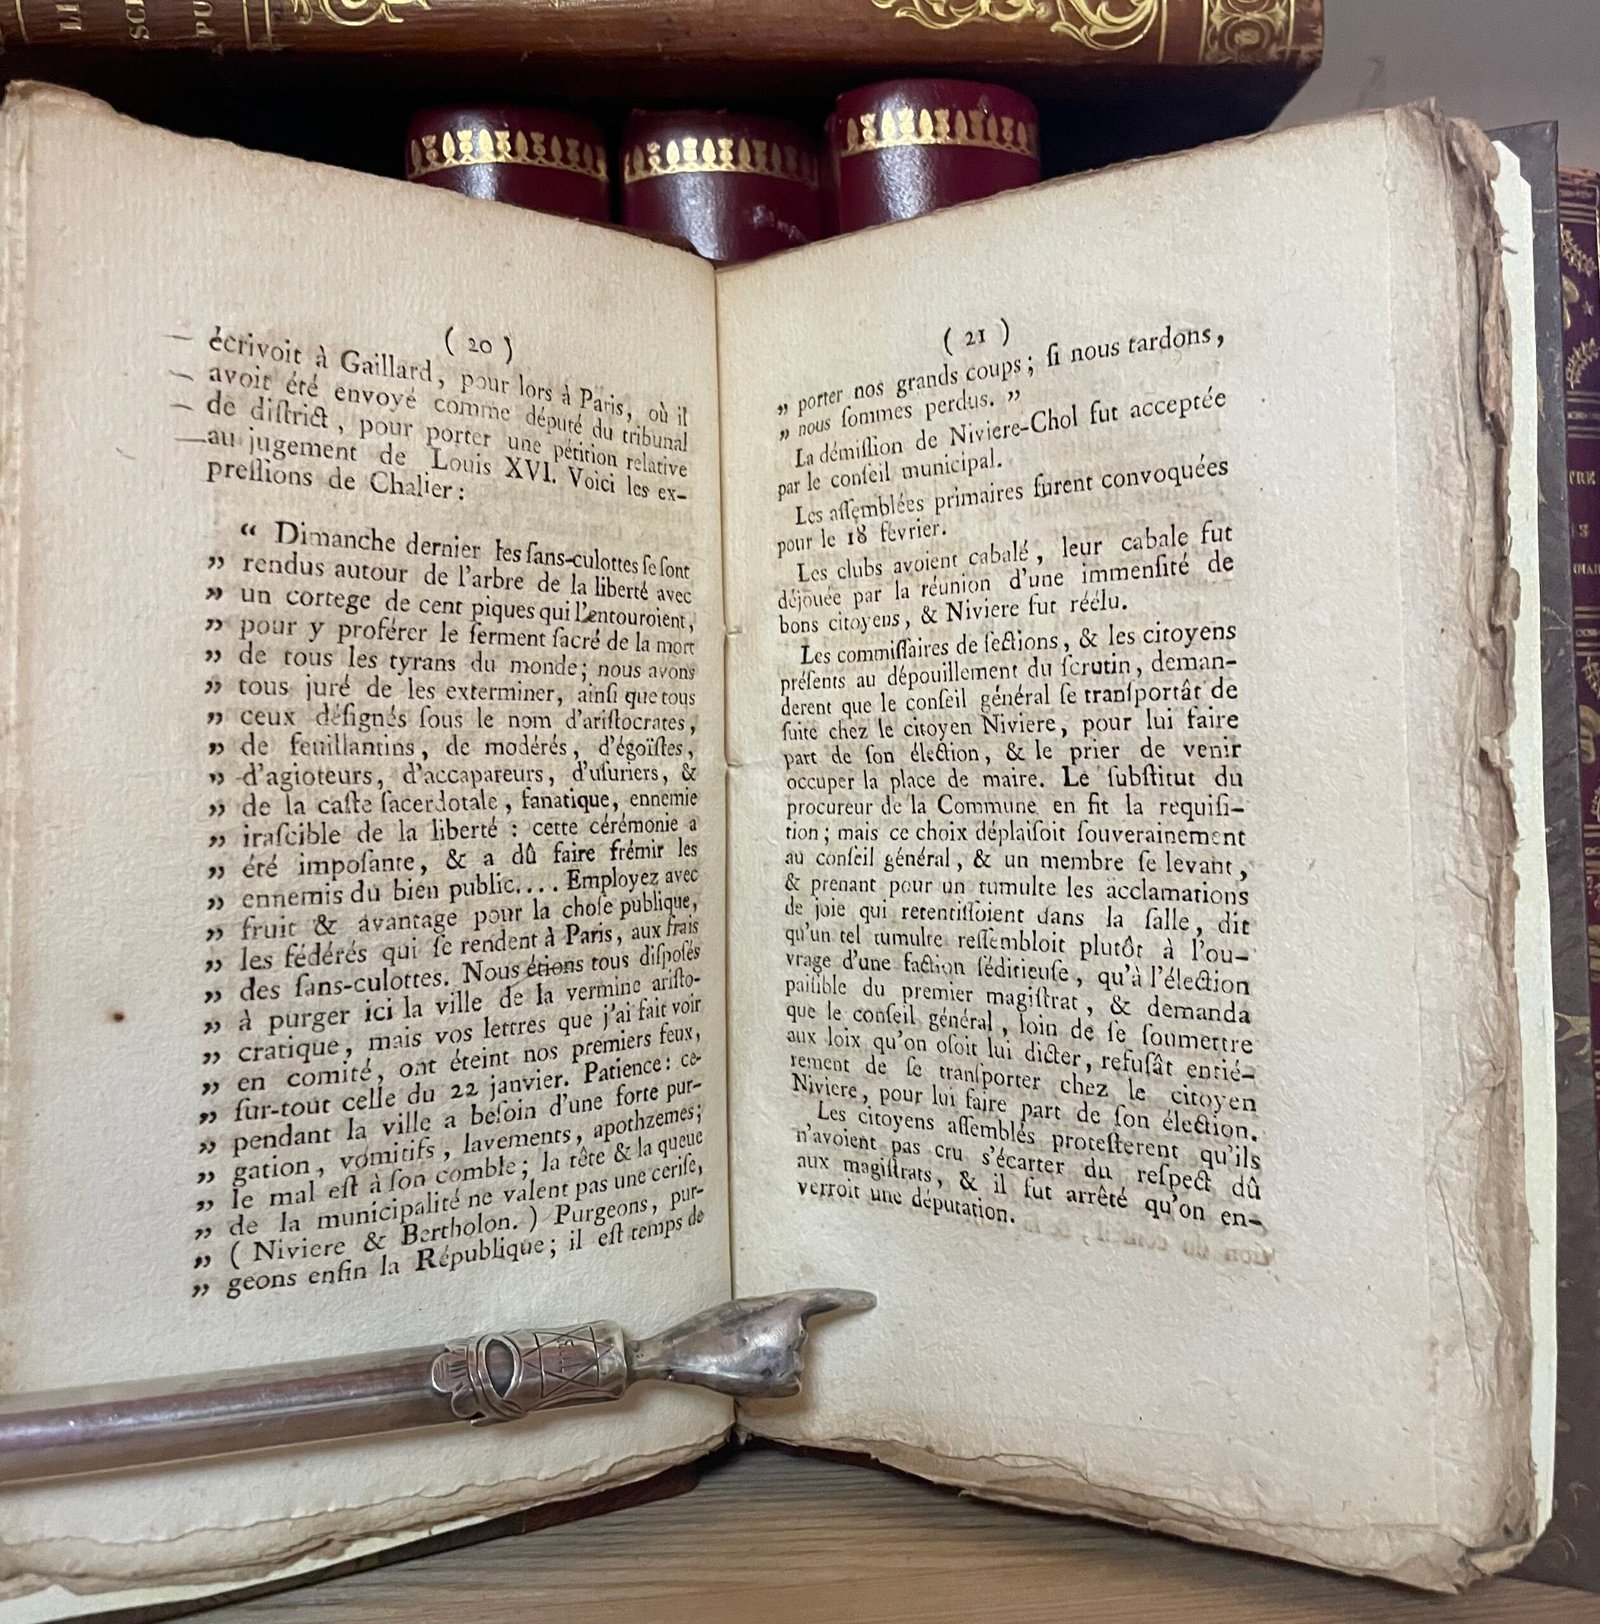 LI
SC
PU
( 20 )
écrivoit à Gaillard, pour lors à Paris, où il
avoit été envoyé comme député du tribunal
de diſtrict, pour porter une pétition relative
au jugement de Louis XVI. Voici les ex-
preſſions de Chalier :
“ Dimanche dernier les ſans-culottes ſe ſont
„ rendus autour de l'arbre de la liberté avec
„ un cortege de cent piques qui l'entouroient,
„ pour y proférer le ferment ſacré de la mort
„ de tous les tyrans du monde; nous avons
„ tous juré de les exterminer, ainſi que tous
„ ceux déſignés ſous le nom d'ariſtocrates,
„ de feuillantins, de modérés, d'égoïſtes,
„ d'agioteurs, d'accapareurs, d'uſuriers, &
„ de la caſte ſacerdotale, fanatique, ennemie
„ iraſcible de la liberté : cette cérémonie a
„ été impoſante, & a dû faire frémir les
„ ennemis du bien public.... Employez avec
„ fruit & avantage pour la choſe publique,
„ les fédérés qui ſe rendent à Paris, aux frais
„ des ſans-culottes. Nous étions tous diſpoſés
„ à purger ici la ville de la vermine ariſto-
„ cratique, mais vos lettres que j'ai fait voir
„ en comité, ont éteint nos premiers feux,
„ ſur-tout celle du 22 janvier. Patience : ce-
„ pendant la ville a beſoin d'une forte pur-
„ gation, vomitifs, lavements, apothzemes;
„ le mal eſt à ſon comble; la tête & la queue
„ de la municipalité ne valent pas une ceriſe,
„ ( Niviere & Bertholon. ) Purgeons, pur-
„ geons enfin la République; il eſt temps de
( 21 )
„ porter nos grands coups; ſi nous tardons,
„ nous ſommes perdus. ”
La démiſſion de Niviere-Chol fut acceptée
par le conſeil municipal.
Les aſſemblées primaires furent convoquées
pour le 18 février.
Les clubs avoient cabalé, leur cabale fut
déjouée par la réunion d'une immenſité de
bons citoyens, & Niviere fut réélu.
Les commiſſaires de ſections, & les citoyens
préſents au dépouillement du ſcrutin, deman-
derent que le conſeil général ſe tranſportât de
ſuite chez le citoyen Niviere, pour lui faire
part de ſon élection, & le prier de venir
occuper la place de maire. Le ſubſtitut du
procureur de la Commune en fit la requiſi-
tion; mais ce choix déplaiſoit ſouverainement
au conſeil général, & un membre ſe levant,
& prenant pour un tumulte les acclamations
de joie qui retentiſſoient dans la ſalle, dit
qu'un tel tumulte reſſembloit plutôt à l'ou-
vrage d'une faction ſéditieuſe, qu'à l'élection
paiſible du premier magiſtrat, & demanda
que le conſeil général, loin de ſe ſoumettre
aux loix qu'on oſoit lui dicter, refuſât entié-
rement de ſe tranſporter chez le citoyen
Niviere, pour lui faire part de ſon élection.
Les citoyens aſſemblés proteſterent qu'ils
n'avoient pas cru s'écarter du reſpect dû
aux magiſtrats, & il fut arrêté qu'on en-
verroit une députation.